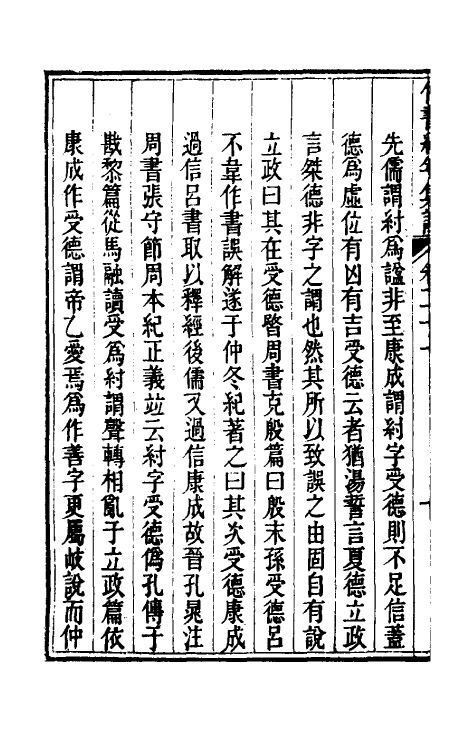 先儒謂紂爲諡非至康成謂紂字受德則不足信葢
德爲虛位有凶有吉受德云者猶湯誓言夏德立政
言桀德非字之謂也然其所以致誤之由固自有說
立政曰其在受德暋周書克殷篇曰殷末孫受德呂
不韋作書誤解遂于仲冬紀著之曰其次受德康成
過信呂書取以釋經後儒又過信康成故晉孔晁注
周書張守節周本紀正義竝云紂字受德僞孔傳于
戡黎篇從馬融讀受爲紂謂聲轉相亂于立政篇依
康成作受德謂帝乙愛焉爲作善字更屬岐說而仲